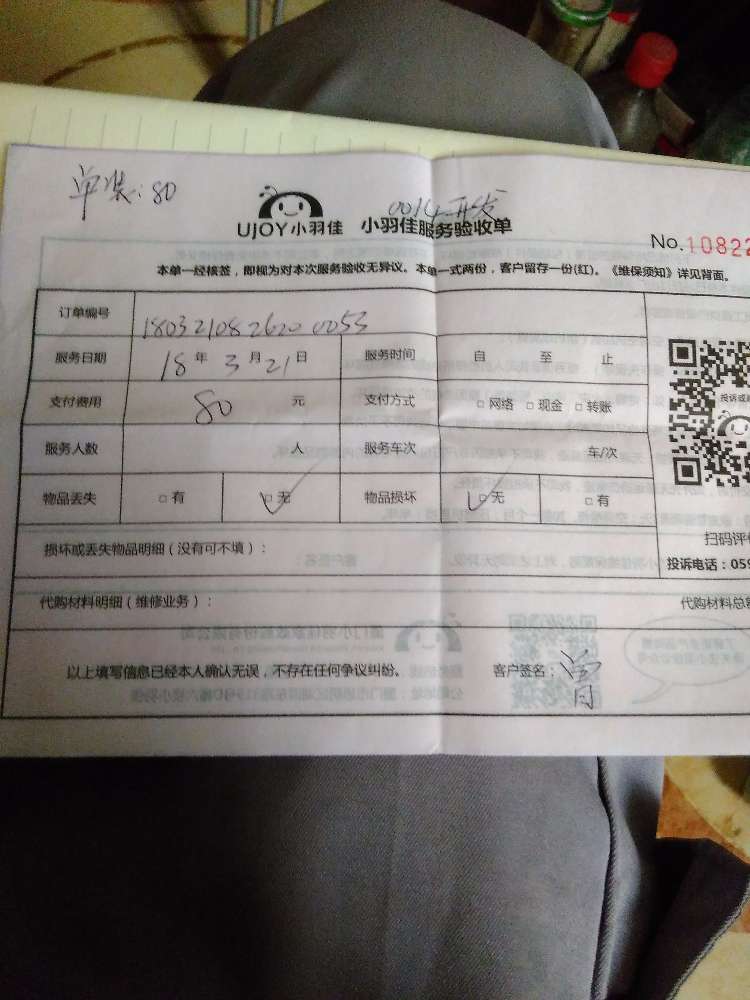 单装:80
0014开发
UJOY小羽佳 小羽佳服务验收单
No.10822
本单一经核签，即视为对本次服务验收无异议。本单一式两份，客户留存一份(红)。《维保须知》详见背面。
订单编号 180321082620 0053
服务日期 18年3月21日 服务时间 自 至 止
支付费用 80 元 支付方式 □网络 □现金 □转账
服务人数 人 服务车次 车/次
物品丢失 □有 □无 物品损坏 □无 □有
投诉或
扫码评
损坏或丢失物品明细（没有可不填）：
投诉电话：059
代购材料明细（维修业务）： 代购材料总
以上填写信息已经本人确认无误，不存在任何争议纠纷。 客户签名：曾